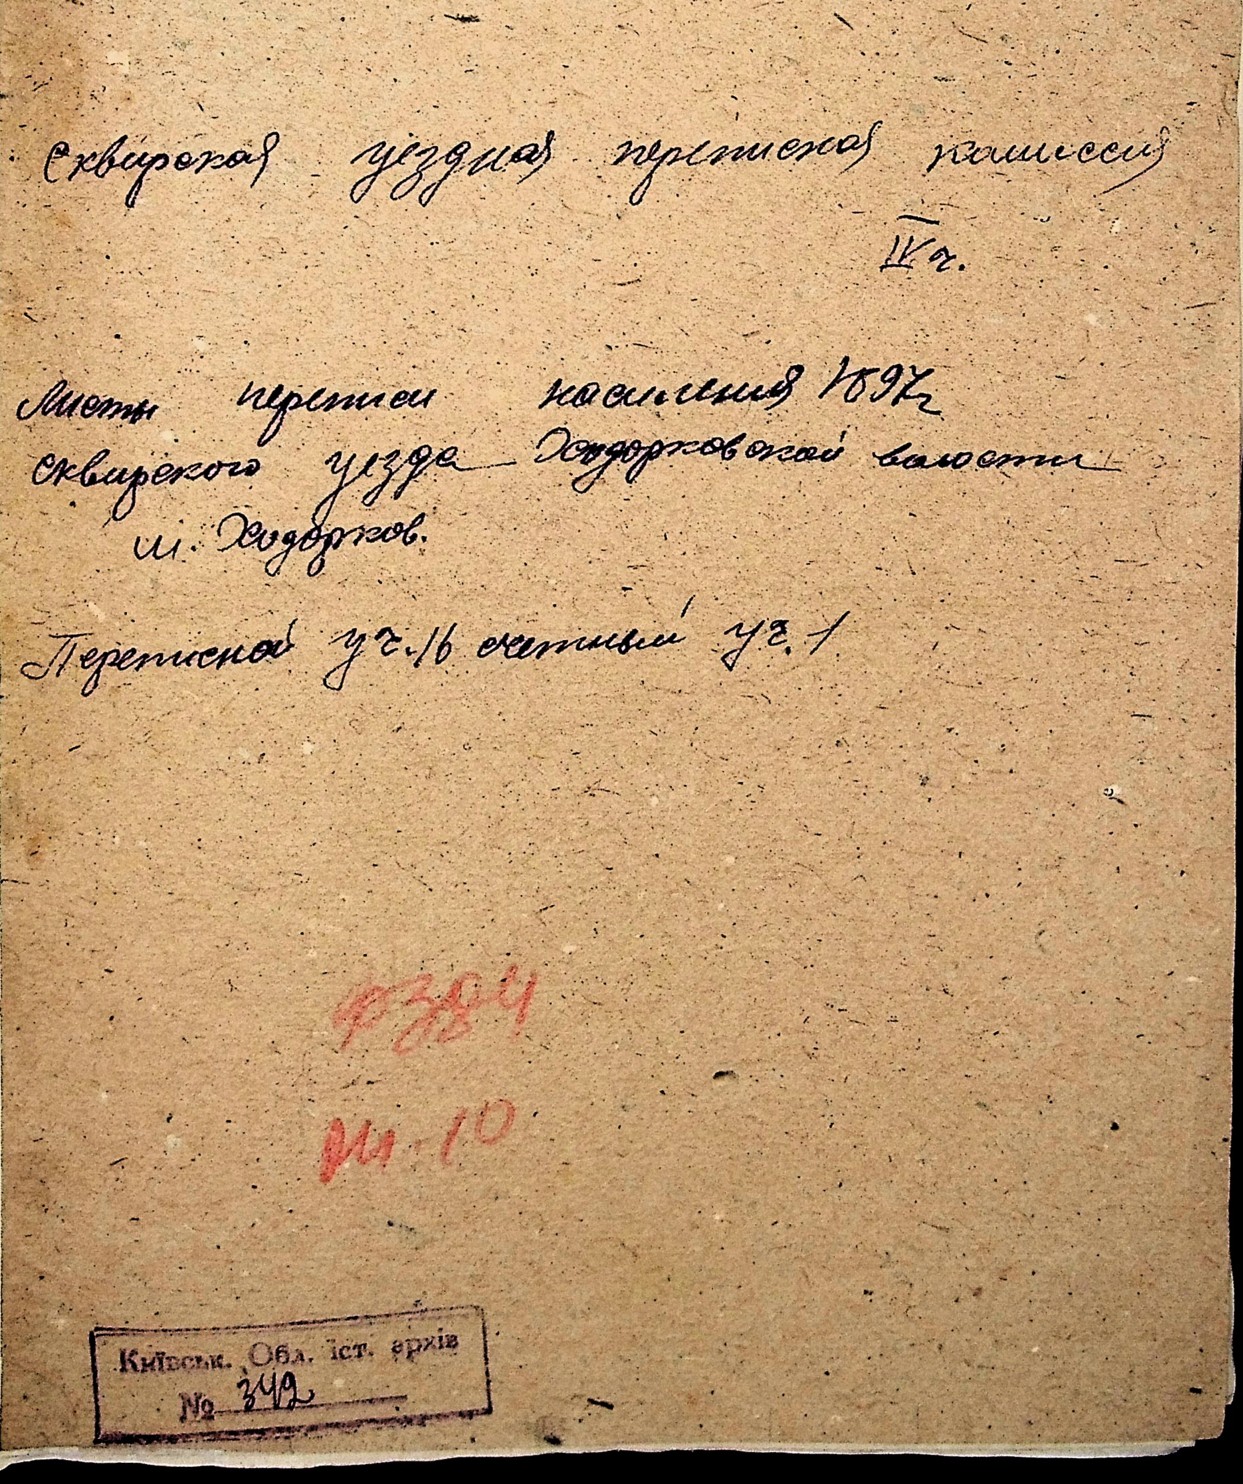 Сквирская уездная переписная комиссия
IV ч.
Листы переписи населения 1897 г
Сквирского уезда Ходорковской волости
м. Ходорков.
Переписной уч. 16 счетный уч. 1
Ф 384
М-10
Київськ. Обл. іст. архів
№ 342